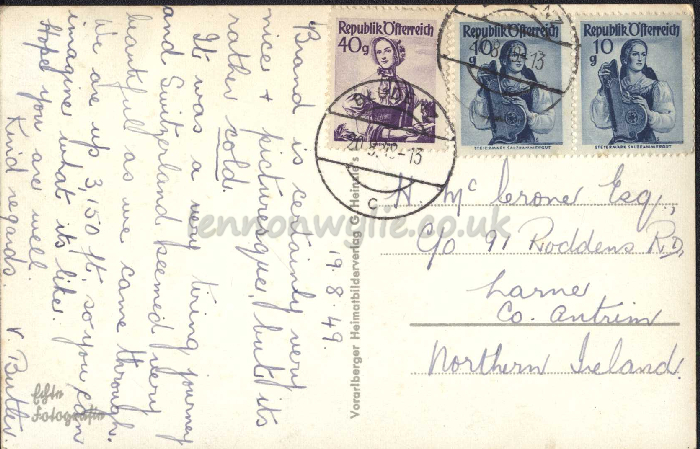 Brand is certainly very
nice + picturesque, but its
rather cold.
It was a very tiring journey
and Switzerland seemed very
beautiful as we came through.
We are up 3,150 ft. so you can
imagine what its like.
Hope you are well.
Kind regards.
V Butler
19.8.49.
Echte
Fotografie
Vorarlberger Heimatbilderverlag G. Heinzle's
Republik Österreich
40g
Republik Österreich
10
g
STEIERMARK SALZKAMMERGUT
Republik Österreich
10
g
STEIERMARK SALZKAMMERGUT
c
H. McCrone Esq.,
C/o 91 Roddens RD,
Larne
Co. Antrim
Northern Ireland.
lennonwylie.co.uk